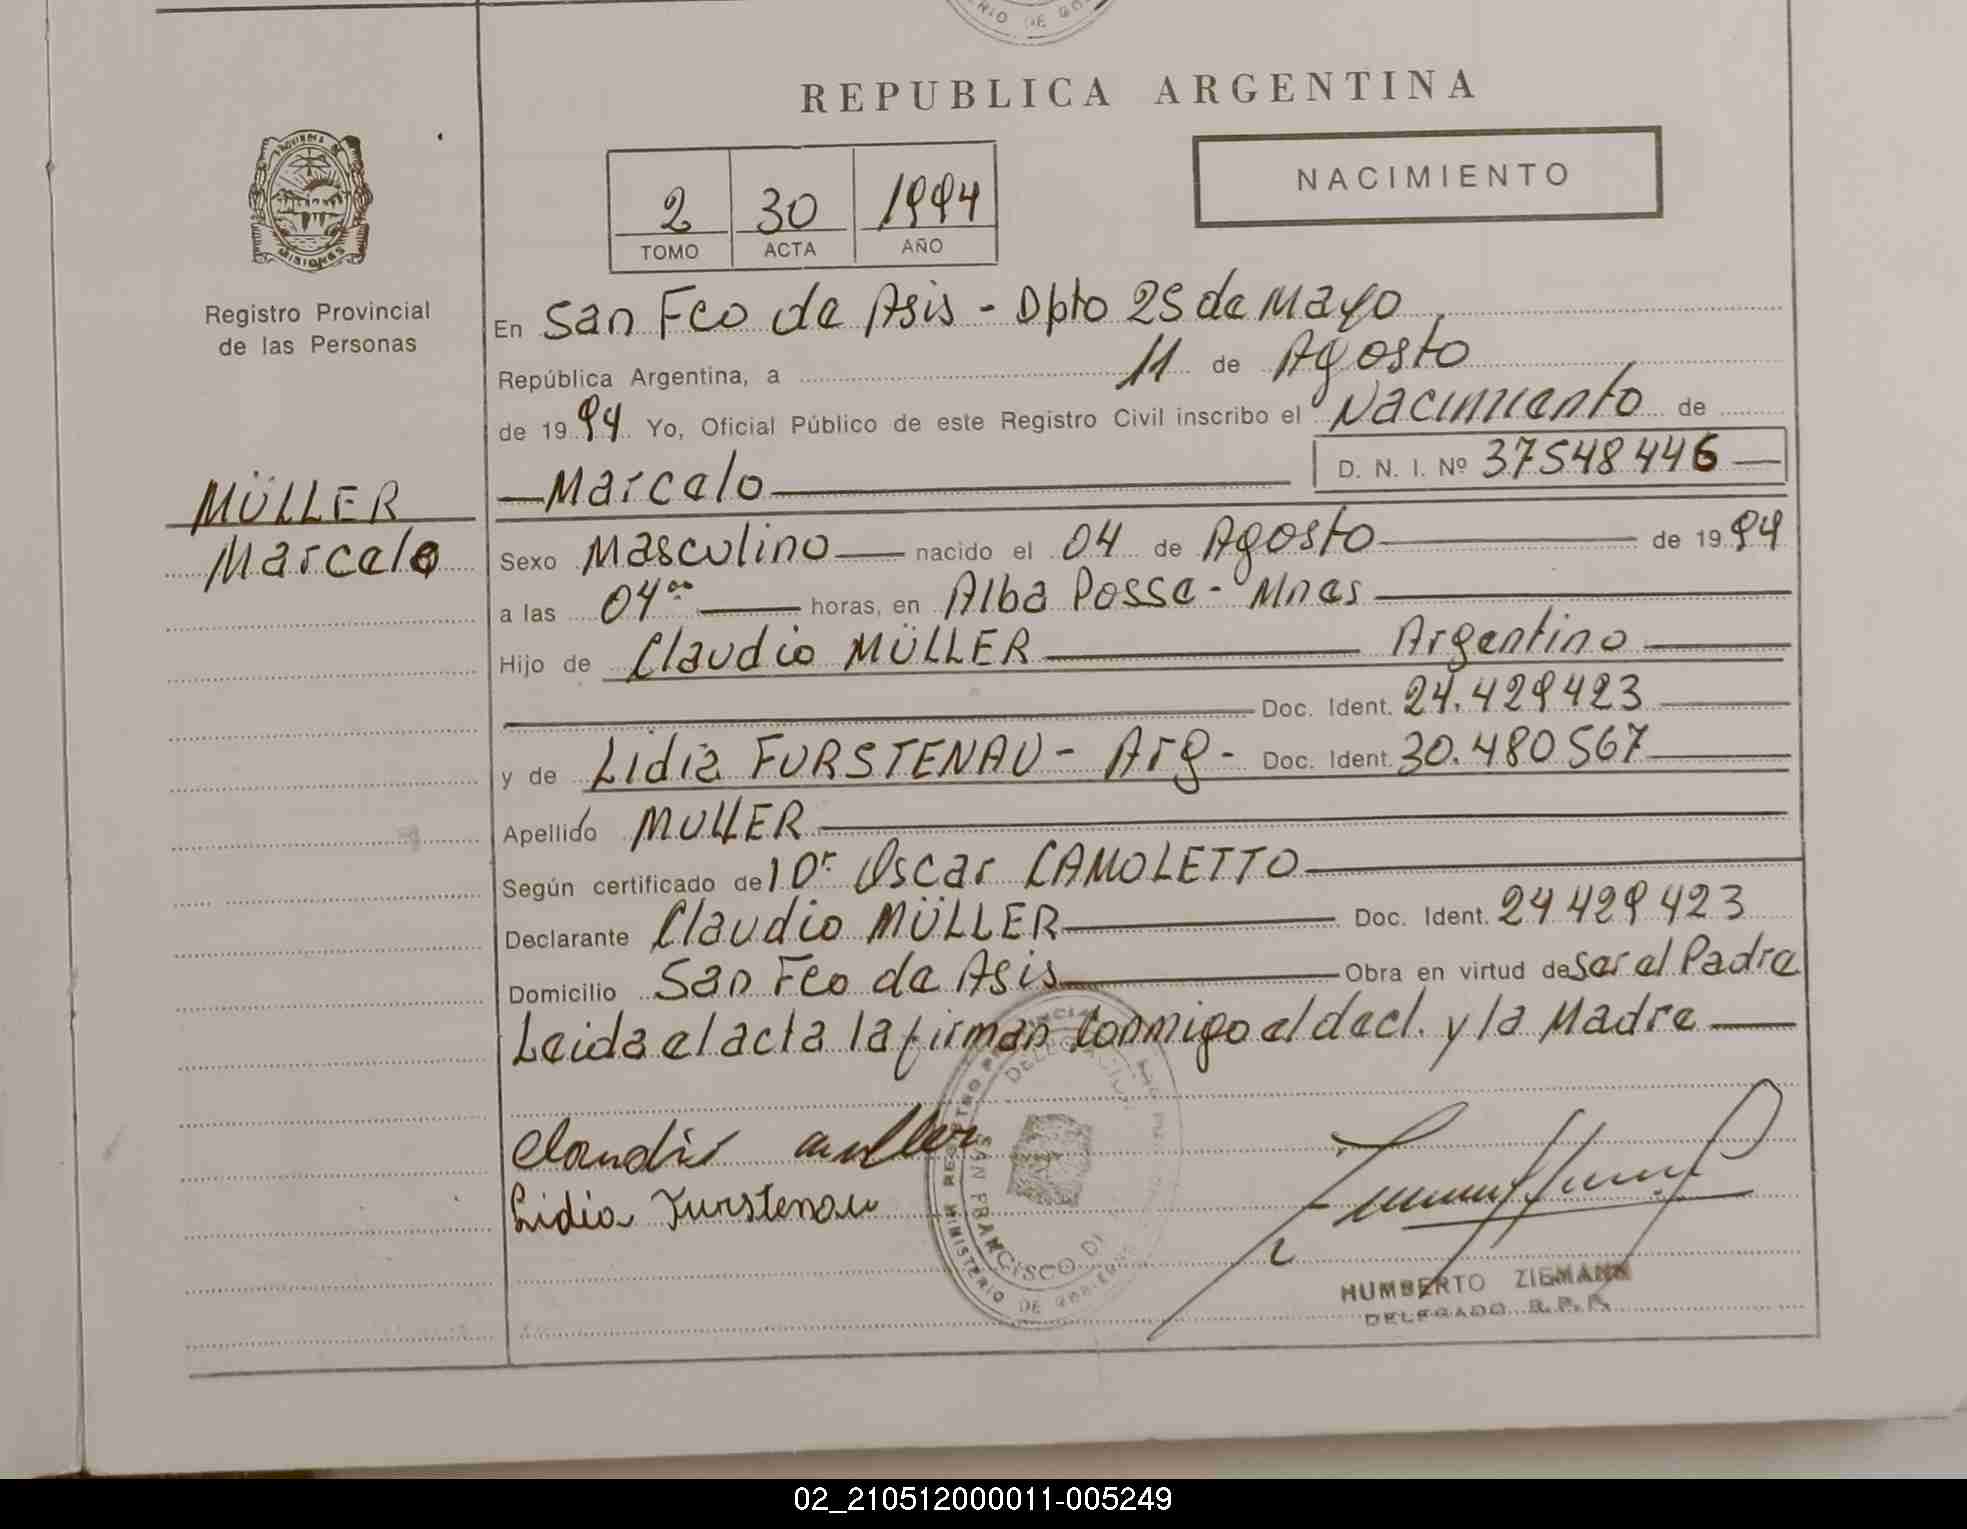 RIO DE GO
REPUBLICA ARGENTINA
NACIMIENTO
2 30 1994
TOMO ACTA AÑO
PROVINCIA DE
MISIONES
Registro Provincial
de las Personas
En San Fco de Asis - Dpto 25 de Mayo
República Argentina, a 11 de Agosto
de 1994 Yo, Oficial Público de este Registro Civil inscribo el Nacimiento de
Marcelo D. N. I. Nº 37548446
MÜLLER
Marcelo
Sexo Masculino nacido el 04 de Agosto de 1994
a las 04 horas, en Alba Posse - Mnes
Hijo de Claudio MÜLLER Argentino
Doc. Ident. 24.429423
y de Lidia FURSTENAU - Arg - Doc. Ident. 30.480567
Apellido MULLER
Según certificado de Dr. Oscar CAMOLETTO
Declarante Claudio MÜLLER Doc. Ident. 24 429 423
Domicilio San Fco de Asis Obra en virtud de ser el Padre
Leida el acta la firman conmigo el decl. y la Madre
Claudio muller
Lidia Furstenau
SAN FRANCISCO DE
MINISTERIO DE GOBIERNO
HUMBERTO ZIEMANN
DELEGADO R. P. P.
02_210512000011-005249